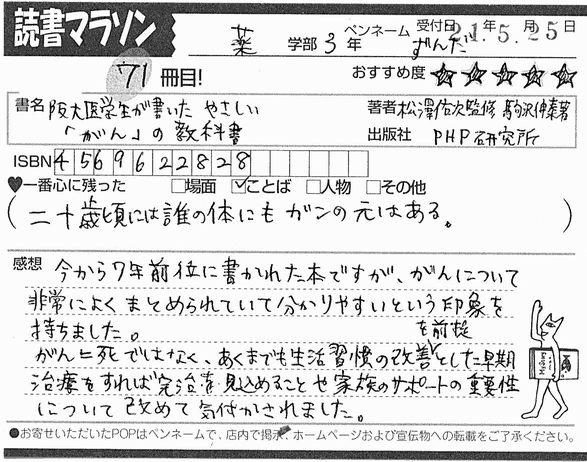 読書マラソン
薬 学部 3 年 ペンネーム ずんだ 受付日 21年5月25日
71 冊目! おすすめ度 ★★★★★
書名 阪大医学生が書いた やさしい 「がん」の教科書
著者 松澤佑次監修 駒沢伸泰著
出版社 PHP研究所
ISBN 4569622828
♥一番心に残った □場面 ☑ことば □人物 □その他
(二十歳頃には誰の体にもガンの元はある。)
感想 今から7年前位に書かれた本ですが、がんについて
非常によくまとめられていて分かりやすいという印象を
持ちました。
がん=死ではなく、あくまでも生活習慣の改善を前提とした早期
治療をすれば完治を見込めることや家族のサポートの重要性
について改めて気付かされました。
●お寄せいただいたPOPはペンネームで、店内で掲示、ホームページおよび宣伝物への転載をご了承ください。